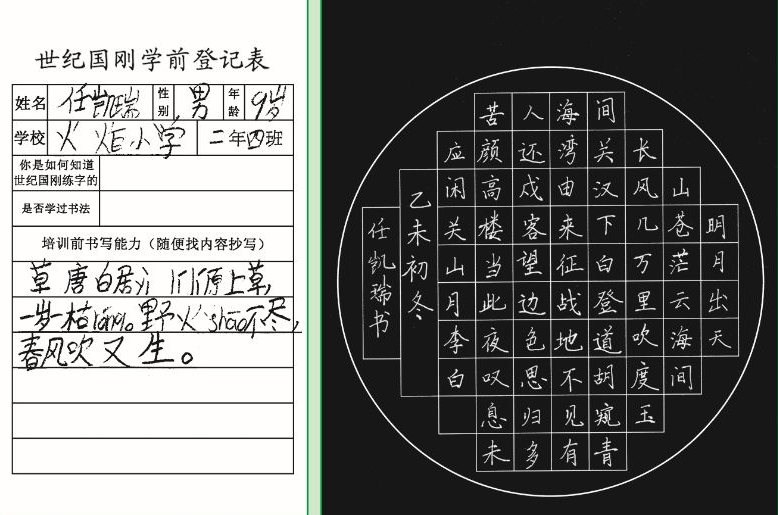 世纪国刚学前登记表
姓名 任凯瑞 性别 男 年龄 9岁
学校 火炬小学 二年四班
你是如何知道
世纪国刚练字的
是否学过书法
培训前书写能力（随便找内容抄写）
草 唐白居yi 原上草，
一岁一枯rong。野火shao不尽，
春风吹又生。
明月出天
山苍茫云海间
长风几万里吹度玉
间关汉下白登道胡窥青
海湾由来征战地不见有
人还戍客望边色思归多
苦颜高楼当此夜叹息未
应闲关山月李白
乙未初冬
任凯瑞书